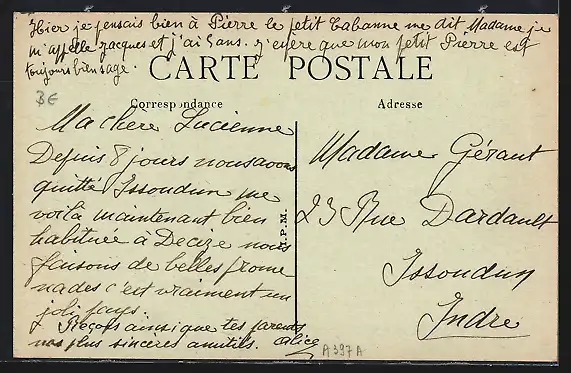 Hier je pensais bien à Pierre le petit Cabanne me dit Madame je
m'appelle Jacques et j'ai 5 ans. J'espère que mon petit Pierre est
toujours bien sage.
CARTE POSTALE
Correspondance
Adresse
Ma chère Lucienne
Depuis 8 jours nous avons
quitté Issoudun me
voilà maintenant bien
habituée à Decize nous
faisons de belles prome
nades c'est vraiment un
joli pays.
Reçois ainsi que tes parents
nos plus sincères amitiés. Alice
I.P.M.
Madame Gérant
23 Rue Dardault
Issoudun
Indre
A397A